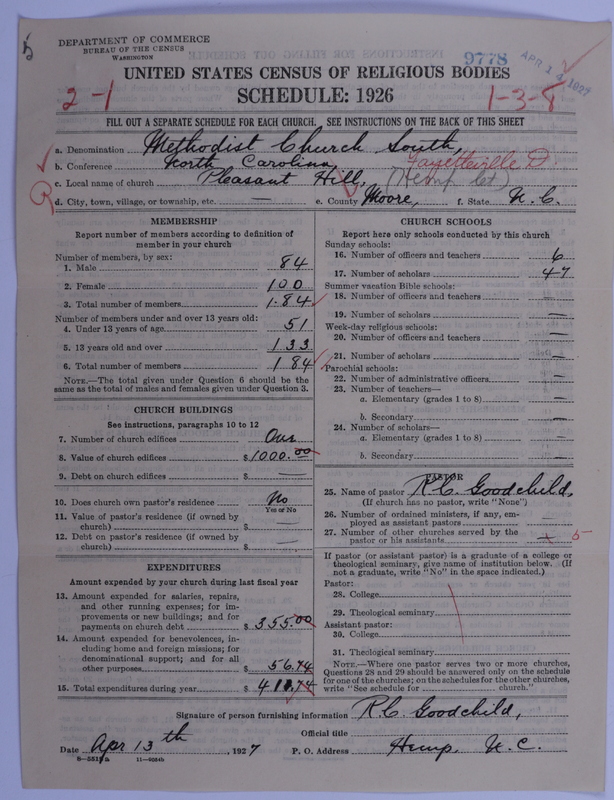 5
DEPARTMENT OF COMMERCE
BUREAU OF THE CENSUS
WASHINGTON
9778 APR 14 1927
UNITED STATES CENSUS OF RELIGIOUS BODIES
2-1 SCHEDULE: 1926 1-3-8
FILL OUT A SEPARATE SCHEDULE FOR EACH CHURCH. SEE INSTRUCTIONS ON THE BACK OF THIS SHEET
a. Denomination Methodist Church South,
b. Conference North Carolina, Fayetteville D.
c. Local name of church Pleasant Hill, (Hemp let)
d. City, town, village, or township, etc. — e. County Moore, f. State N.C.
MEMBERSHIP
Report number of members according to definition of
member in your church
Number of members, by sex:
1. Male 84
2. Female 100
3. Total number of members 184
Number of members under and over 13 years old:
4. Under 13 years of age 51
5. 13 years old and over 133
6. Total number of members 184
NOTE.—The total given under Question 6 should be the
same as the total of males and females given under Question 3.
CHURCH BUILDINGS
See instructions, paragraphs 10 to 12
7. Number of church edifices One
8. Value of church edifices $1000.00
9. Debt on church edifices $ —
10. Does church own pastor's residence No
Yes or No
11. Value of pastor's residence (if owned by
church) $ —
12. Debt on pastor's residence (if owned by
church) $ —
EXPENDITURES
Amount expended by your church during last fiscal year
13. Amount expended for salaries, repairs,
and other running expenses; for im-
provements or new buildings; and for
payments on church debt $ 355.00
14. Amount expended for benevolences, in-
cluding home and foreign missions; for
denominational support; and for all
other purposes $ 56.74
15. Total expenditures during year $ 411.74
CHURCH SCHOOLS
Report here only schools conducted by this church
Sunday schools:
16. Number of officers and teachers 6
17. Number of scholars 47
Summer vacation Bible schools:
18. Number of officers and teachers —
19. Number of scholars —
Week-day religious schools:
20. Number of officers and teachers —
21. Number of scholars —
Parochial schools:
22. Number of administrative officers —
23. Number of teachers—
a. Elementary (grades 1 to 8) —
b. Secondary —
24. Number of scholars—
a. Elementary (grades 1 to 8) —
b. Secondary —
PASTOR
25. Name of pastor R.C. Goodchild,
(If church has no pastor, write "None")
26. Number of ordained ministers, if any, em-
ployed as assistant pastors —
27. Number of other churches served by the
pastor or his assistants 5
If pastor (or assistant pastor) is a graduate of a college or
theological seminary, give name of institution below. (If
not a graduate, write "No" in the space indicated.)
Pastor:
28. College
29. Theological seminary
Assistant pastor:
30. College
31. Theological seminary
NOTE.—Where one pastor serves two or more churches,
Questions 28 and 29 should be answered only on the schedule
for one of the churches; on the schedules for the other churches,
write "See schedule for ________ church."
Signature of person furnishing information R.C. Goodchild,
Official title
Date Apr 13th, 1927 P. O. Address Hemp, N.C.